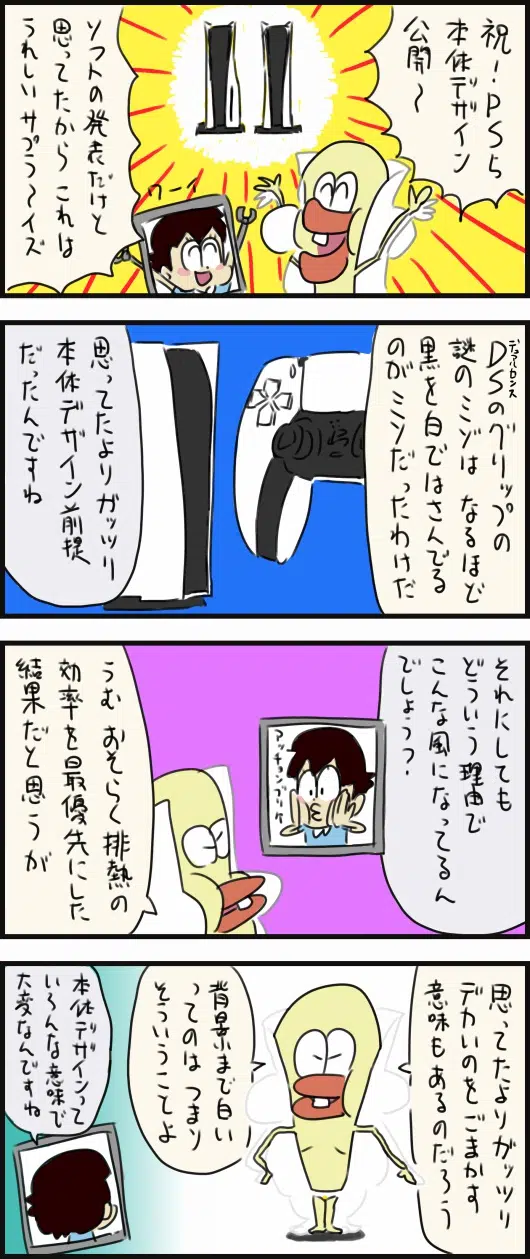 祝!PS5
本体デザイン
公開〜
ソフトの発表だけと
思ってたから これは
うれしい サプラ〜イズ
ワーイ
デュアルセンス
DSのグリップの
謎のミゾは なるほど
黒を白ではさんでる
のがミソだったわけだ
思ってたよりガッツリ
本体デザイン前提
だったんですね
それにしても
どういう理由で
こんな風になってるん
でしょう?
アッチョンブリケ
うむ おそらく排熱の
効率を最優先にした
結果だと思うが
思ってたよりガッツリ
デカいのをごまかす
意味もあるのだろう
背景まで白い
ってのは つまり
そういうことよ
本体デザインって
いろんな意味で
大変なんですね